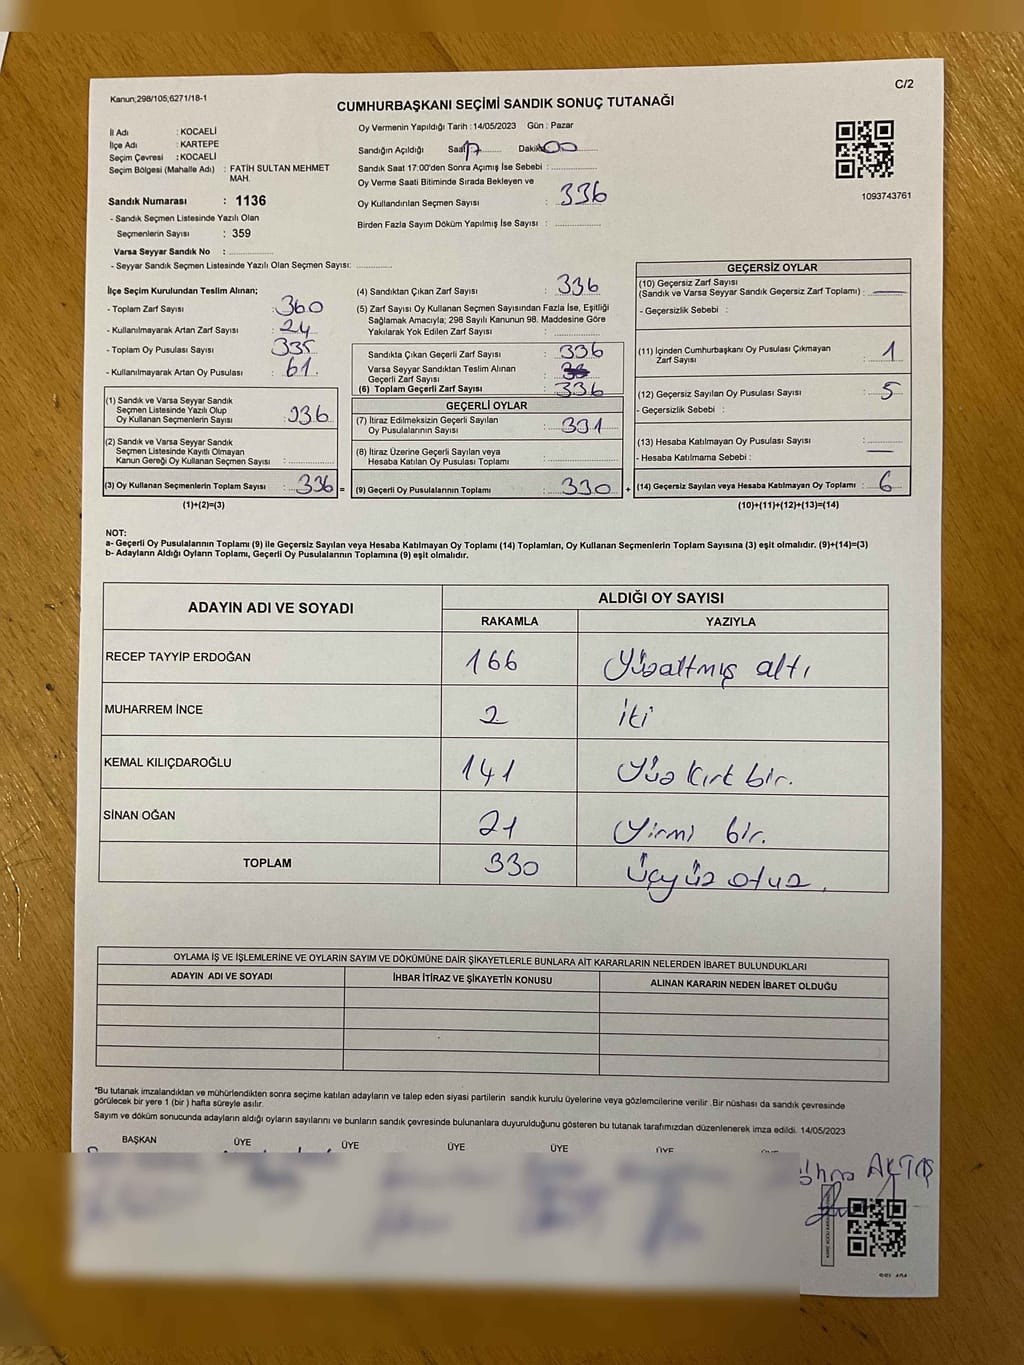 Kanun;298/105;6271/18-1
C/2
CUMHURBAŞKANI SEÇİMİ SANDIK SONUÇ TUTANAĞI
İl Adı : KOCAELİ
İlçe Adı : KARTEPE
Seçim Çevresi : KOCAELİ
Seçim Bölgesi (Mahalle Adı) : FATİH SULTAN MEHMET MAH.
Sandık Numarası : 1136
- Sandık Seçmen Listesinde Yazılı Olan
Seçmenlerin Sayısı : 359
Varsa Seyyar Sandık No : ..............
- Seyyar Sandık Seçmen Listesinde Yazılı Olan Seçmen Sayısı: ............
Oy Vermenin Yapıldığı Tarih :14/05/2023 Gün : Pazar
Sandığın Açıldığı Saat 17 Dakika 00
Sandık Saat 17:00'den Sonra Açımış İse Sebebi : ..............
Oy Verme Saati Bitiminde Sırada Bekleyen ve
Oy Kullandırılan Seçmen Sayısı : 336
Birden Fazla Sayım Döküm Yapılmış İse Sayısı : ..............
1093743761
İlçe Seçim Kurulundan Teslim Alınan;
- Toplam Zarf Sayısı : 360
- Kullanılmayarak Artan Zarf Sayısı : 24
- Toplam Oy Pusulası Sayısı : 335
- Kullanılmayarak Artan Oy Pusulası : 61.
(1) Sandık ve Varsa Seyyar Sandık
Seçmen Listesinde Yazılı Olup
Oy Kullanan Seçmenlerin Sayısı : 336
(2) Sandık ve Varsa Seyyar Sandık
Seçmen Listesinde Kayıtlı Olmayan
Kanun Gereği Oy Kullanan Seçmen Sayısı : ..............
(3) Oy Kullanan Seçmenlerin Toplam Sayısı : 336 =
(1)+(2)=(3)
(4) Sandıktan Çıkan Zarf Sayısı : 336
(5) Zarf Sayısı Oy Kullanan Seçmen Sayısından Fazla İse, Eşitliği
Sağlamak Amacıyla; 298 Sayılı Kanunun 98. Maddesine Göre
Yakılarak Yok Edilen Zarf Sayısı : ..............
Sandıkta Çıkan Geçerli Zarf Sayısı : 336
Varsa Seyyar Sandıktan Teslim Alınan
Geçerli Zarf Sayısı :
(6) Toplam Geçerli Zarf Sayısı : 336
GEÇERLİ OYLAR
(7) İtiraz Edilmeksizin Geçerli Sayılan
Oy Pusulalarının Sayısı : 331
(8) İtiraz Üzerine Geçerli Sayılan veya
Hesaba Katılan Oy Pusulası Toplamı : ..............
(9) Geçerli Oy Pusulalarının Toplamı : 330 +
GEÇERSİZ OYLAR
(10) Geçersiz Zarf Sayısı
(Sandık ve Varsa Seyyar Sandık Geçersiz Zarf Toplamı) : —
- Geçersizlik Sebebi :
(11) İçinden Cumhurbaşkanı Oy Pusulası Çıkmayan
Zarf Sayısı : 1
(12) Geçersiz Sayılan Oy Pusulası Sayısı : 5
- Geçersizlik Sebebi :
(13) Hesaba Katılmayan Oy Pusulası Sayısı : ..............
- Hesaba Katılmama Sebebi : —
(14) Geçersiz Sayılan veya Hesaba Katılmayan Oy Toplamı : 6
(10)+(11)+(12)+(13)=(14)
NOT:
a- Geçerli Oy Pusulalarının Toplamı (9) ile Geçersiz Sayılan veya Hesaba Katılmayan Oy Toplamı (14) Toplamları, Oy Kullanan Seçmenlerin Toplam Sayısına (3) eşit olmalıdır. (9)+(14)=(3)
b- Adayların Aldığı Oyların Toplamı, Geçerli Oy Pusulalarının Toplamına (9) eşit olmalıdır.
ADAYIN ADI VE SOYADI ALDIĞI OY SAYISI
RAKAMLA YAZIYLA
RECEP TAYYİP ERDOĞAN 166 Yüzaltmış altı
MUHARREM İNCE 2 iki
KEMAL KILIÇDAROĞLU 141 Yüz kırk bir.
SİNAN OĞAN 21 Yirmi bir.
TOPLAM 330 Üçyüz otuz.
OYLAMA İŞ VE İŞLEMLERİNE VE OYLARIN SAYIM VE DÖKÜMÜNE DAİR ŞİKAYETLERLE BUNLARA AİT KARARLARIN NELERDEN İBARET BULUNDUKLARI
ADAYIN ADI VE SOYADI İHBAR İTİRAZ VE ŞİKAYETİN KONUSU ALINAN KARARIN NEDEN İBARET OLDUĞU
*Bu tutanak imzalandıktan ve mühürlendikten sonra seçime katılan adayların ve talep eden siyasi partilerin sandık kurulu üyelerine veya gözlemcilerine verilir .Bir nüshası da sandık çevresinde
görülecek bir yere 1 (bir ) hafta süreyle asılır.
Sayım ve döküm sonucunda adayların aldığı oyların sayılarını ve bunların sandık çevresinde bulunanlara duyurulduğunu gösteren bu tutanak tarafımızdan düzenlenerek imza edildi. 14/05/2023
BAŞKAN ÜYE ÜYE ÜYE ÜYE ÜYE
AKTAŞ